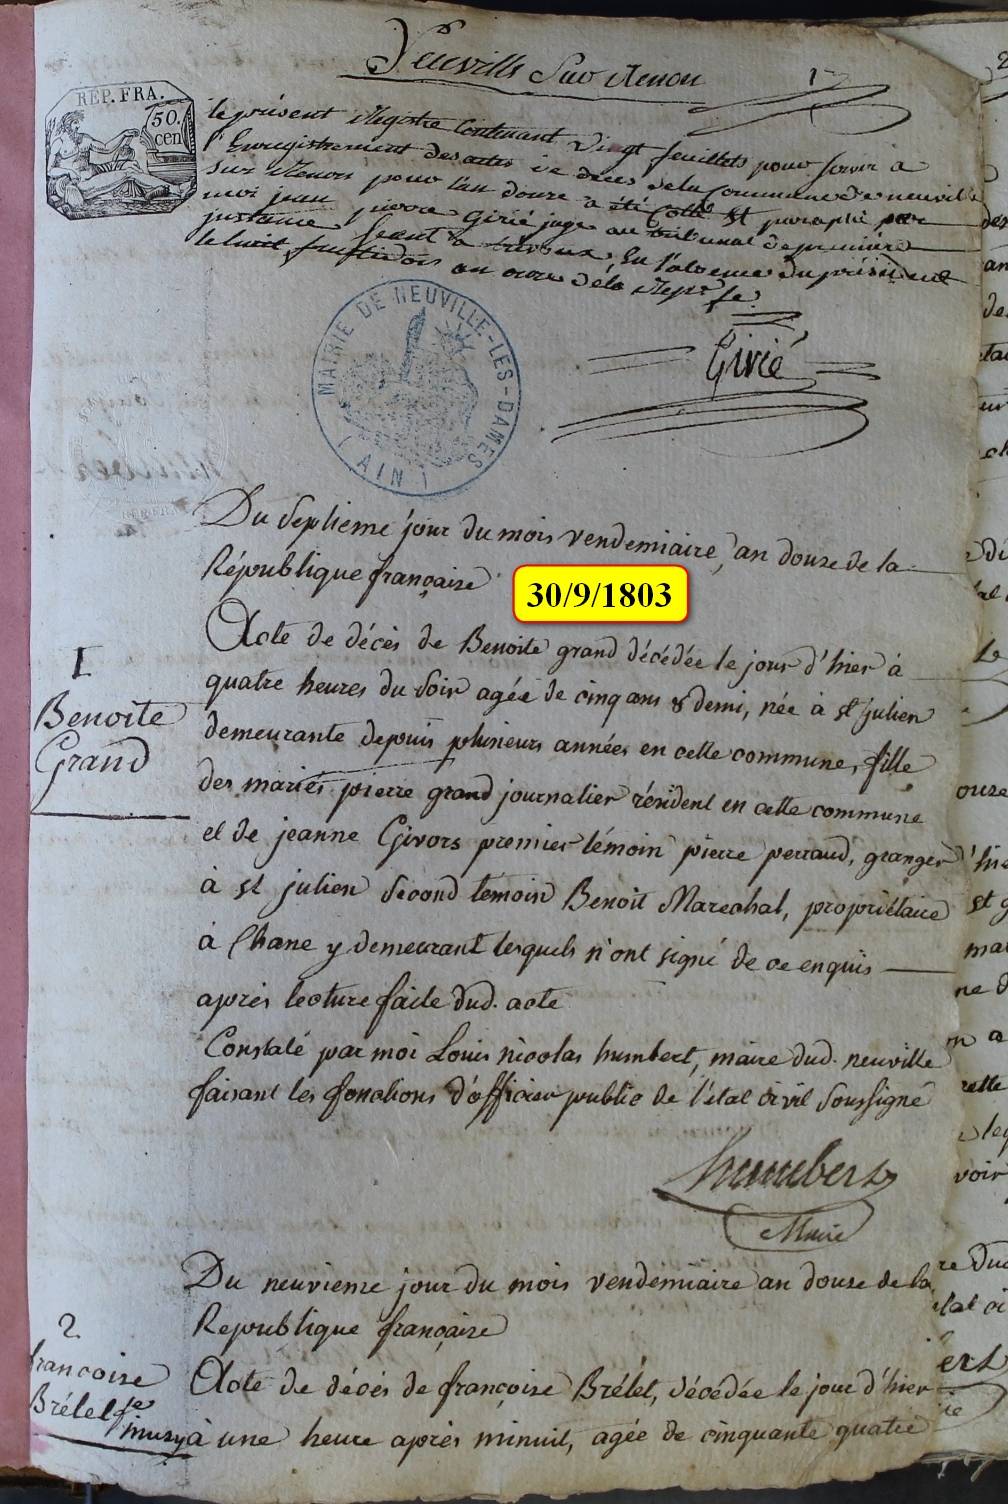 Neuville Sur Renon
1
REP. FRA.
50.
cen
le présent Registre Contenant Vingt feuillets pour servir a
l'Enregistrement des actes de déces de la Commune de neuville
sur Renon pour l'an douze a été Cotté et paraphé par
moi jean pierre Girié juge au tribunal de première
justance séant a trevoux En l'absence du président
le huit fructidor an onze de la Repe. fse.
MAIRIE DE NEUVILLE-LES-DAMES
(AIN)
Girié
Du Septieme jour du mois vendemiaire, an douze de la
République française
30/9/1803
Acte de décès de Benoite grand décédée le jour d'hier à
quatre heures du Soir agée de cinq ans & demi, née à st julien
demeurante depuis plusieurs années en cette commune, fille
des mariés pierre grand journalier résident en cette commune
et de jeanne Givors premier témoin pierre perraud, granger
à st julien Second temoin Benoit Marechal, propriétaire
à Chane y demeurant lesquels n'ont signé de ce enquis
après lecture faite dud. acte
Constaté par moi Louis nicolas humbert, maire dud. neuville
faisant les fonctions d'officier public de l'état civil Soussigné
I.
Benoite
Grand
humbert
Maire
Du neuvieme jour du mois vendémiaire an douze de la
Republique française
Acte de décés de françoise Brélet, décédée le jour d'hier
à une heure après minuit, agée de cinquante quatre
2.
francoise
Brélet fe
muzy